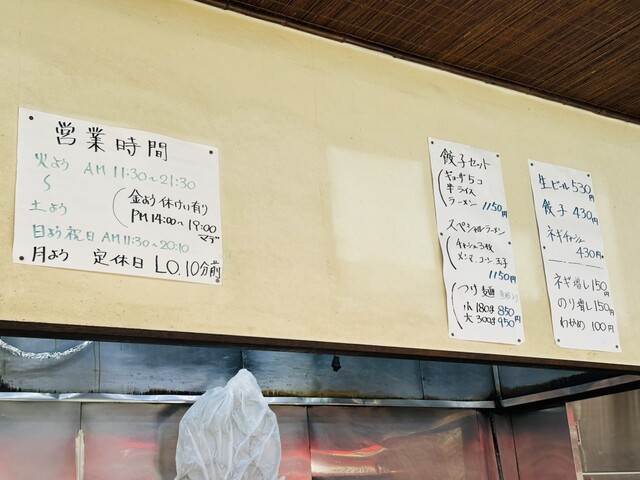 営業時間
火よう AM 11:30~21:30
〜
土よう
(金よう休けい有り
PM 14:00~19:00
マデ
日よう祝日 AM11:30~20:10
月よう 定休日 L.O.10分前
餃子セット
ギョーザ5コ
半ライス
ラーメン 1150円
スペシャルラーメン
チャーシュー3枚
メンマ.コーン.玉子
1150円
つけ麺
小 180g 850
大 300g 950円
生ビール 530円
餃子 430円
ネギチャーシュー
430円
ネギ増し 150円
のり増し 150円
わかめ 100円